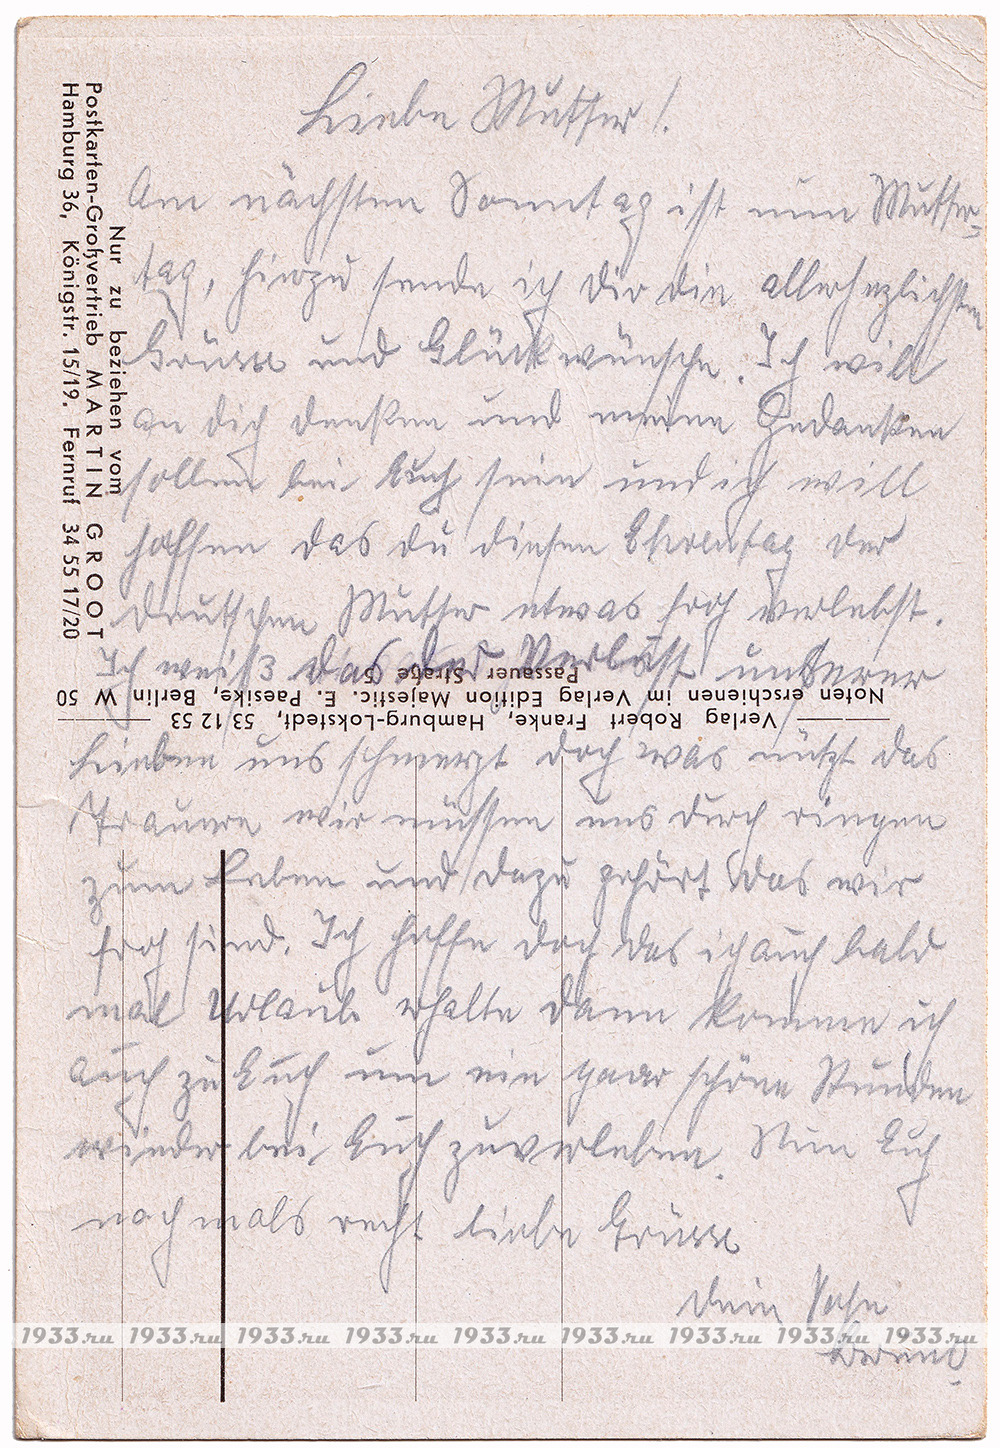 Liebe Mutter!
Am nächsten Sonntag ist nun Mutter=
tag, hierzu sende ich Dir die allerherzlichsten
Grüsse und Glückwünsche. Ich will
an dich denken und meine Gedanken
sollen bei Euch sein und ich will
hoffen das du diesen Ehrentag der
deutschen Mutter etwas froh verlebst.
Ich weiß das der Verlust unserer
Lieben uns schmerzt doch was nützt das
Trauern wir müssen uns durch ringen
zum Leben und dazu gehört das wir
froh sind. Ich hoffe doch das ich auch bald
mal Urlaub erhalte dann komme ich
auch zu Euch um ein paar schöne Stunden
wieder bei Euch zuverleben. Nun Euch
nochmals recht liebe Grüsse
Dein Sohn
Nur zu beziehen vom
Postkarten-Großvertrieb MARTIN GROOT
Hamburg 36, Königstr. 15/19. Fernruf 34 55 17/20
Verlag Robert Franke, Hamburg-Lokstedt, 53 12 53
Noten erschienen im Verlag Edition Majestic. E. Paesike, Berlin W 50
Passauer Straße 5
1933.ru 1933.ru 1933.ru 1933.ru 1933.ru 1933.ru 1933.ru 1933.ru 1933.ru